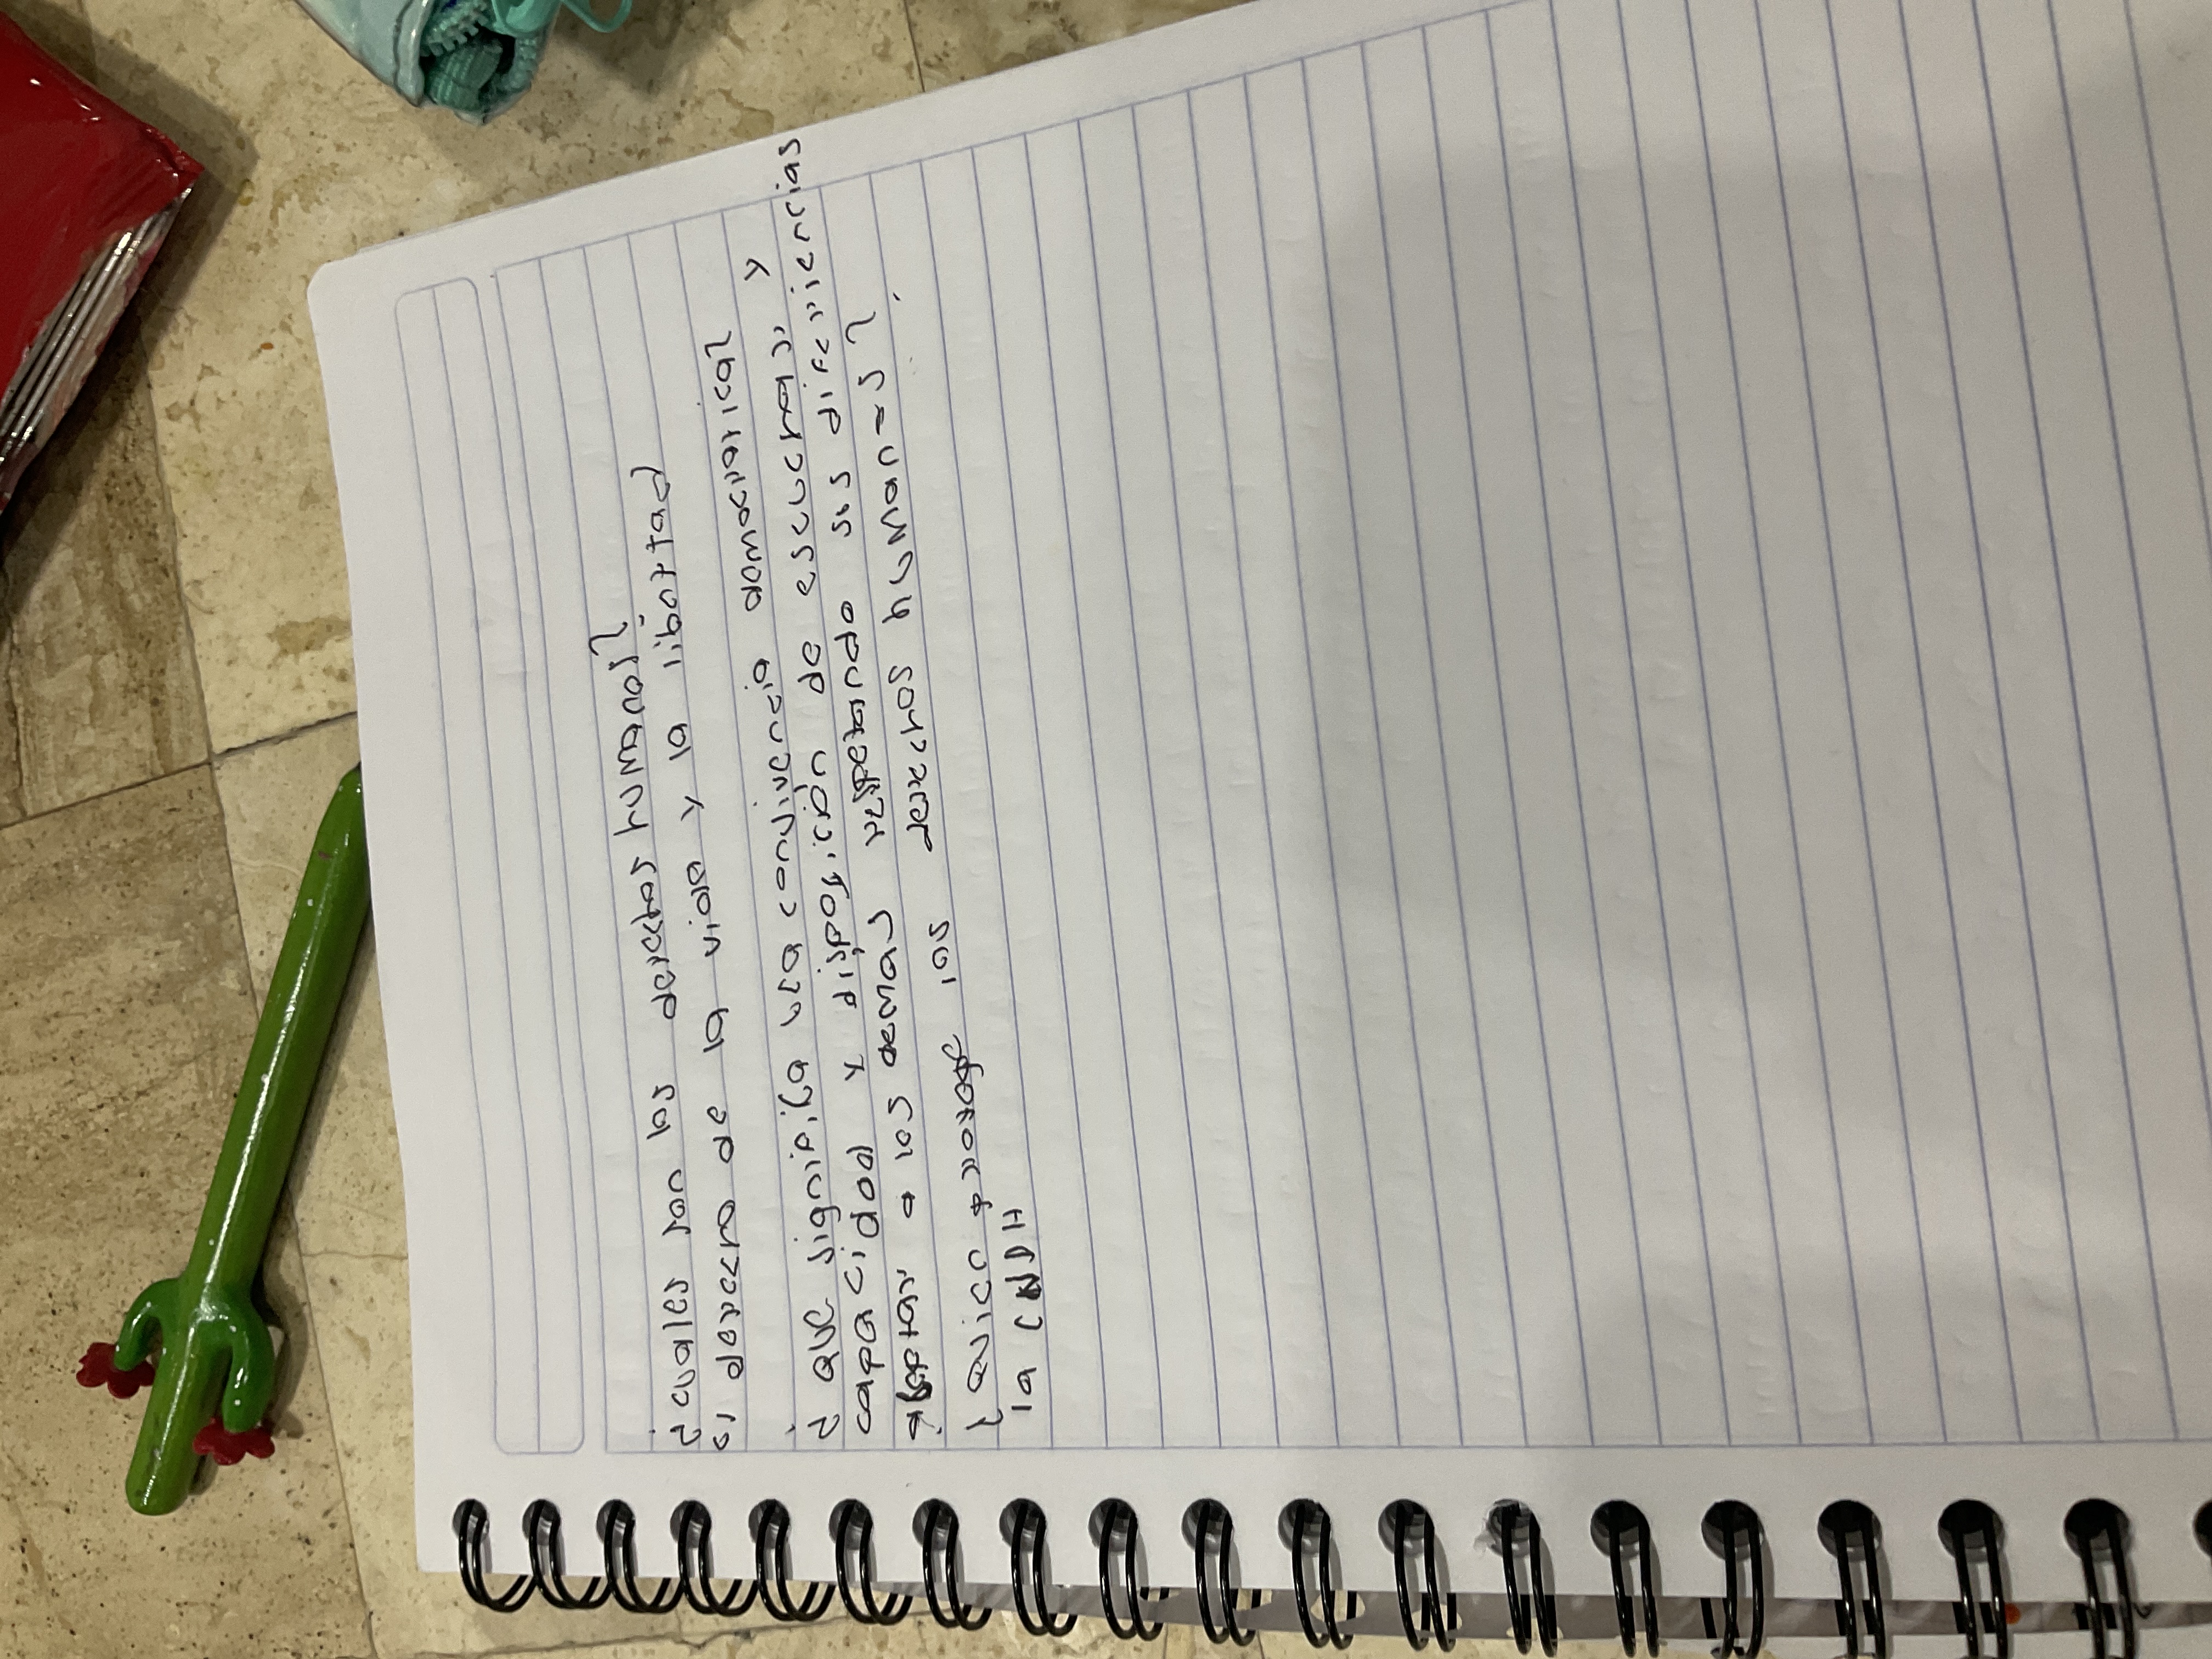 ¿cuales son los derectos humanos?
el derecro de la vida y la libartad
¿ que significa uea convivencia damocratica? y
capacidad y disposición de escuchar, y
aseptar a los demas respetando sus diferriencias
¿ quien protege los derechos humanos?
la CNDH